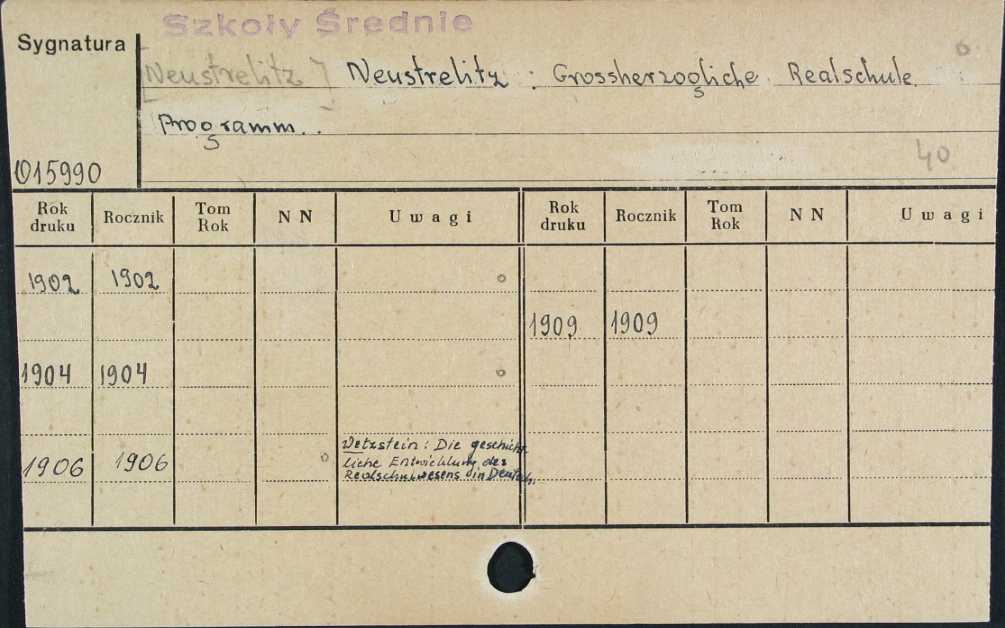 Szkoły Średnie
Sygnatura
[Neustrelitz] Neustrelitz : Grossherzogliche Realschule.
Programm..
015990
40
Rok druku Rocznik Tom Rok NN Uwagi Rok druku Rocznik Tom Rok NN Uwagi
1902 1902
1909 1909
1904 1904
1906 1906
Wetzstein : Die geschicht
liche Entwicklung des
Realschulwesens in Deutsch.